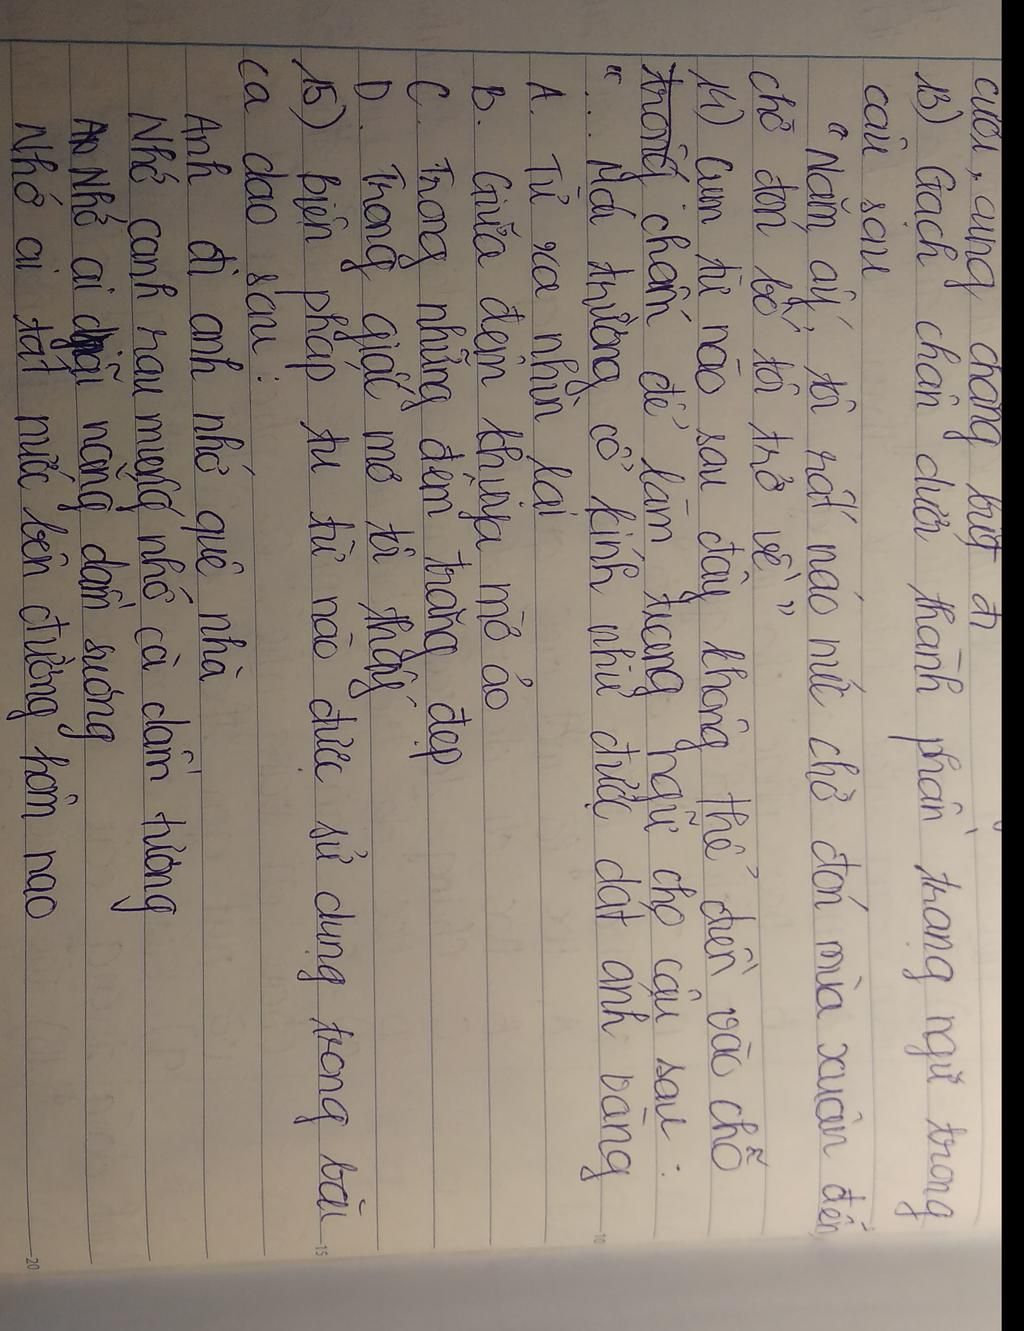 cười, cung chẳng biết đi
13) Gạch chân dưới thành phần trạng ngữ trong
câu sau
"Năm ấy, tôi rất náo nức chờ đón mùa xuân đến,
chờ đón bố tôi trở về"
14) Cụm từ nào sau đây không thể điền vào chỗ
trống chấm để làm trạng ngữ cho câu sau:
"... Mái trường cổ kính như được dát ánh vàng
A. Từ xa nhìn lại
B. Giữa đêm khuya mờ ảo
C. Trong những đêm trăng đẹp
D. Trong giấc mơ tôi thấy
15) biện pháp tu từ nào được sử dụng trong bài
ca dao sau:
Anh đi anh nhớ quê nhà
Nhớ canh rau muống nhớ cà dầm tương
Nhớ ai dãi nắng dầm sương
Nhớ ai tát nước bên đường hôm nao